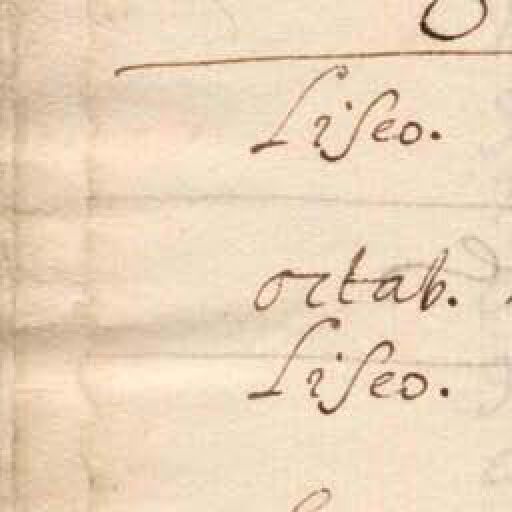 Liseo.
octab.
Liseo.